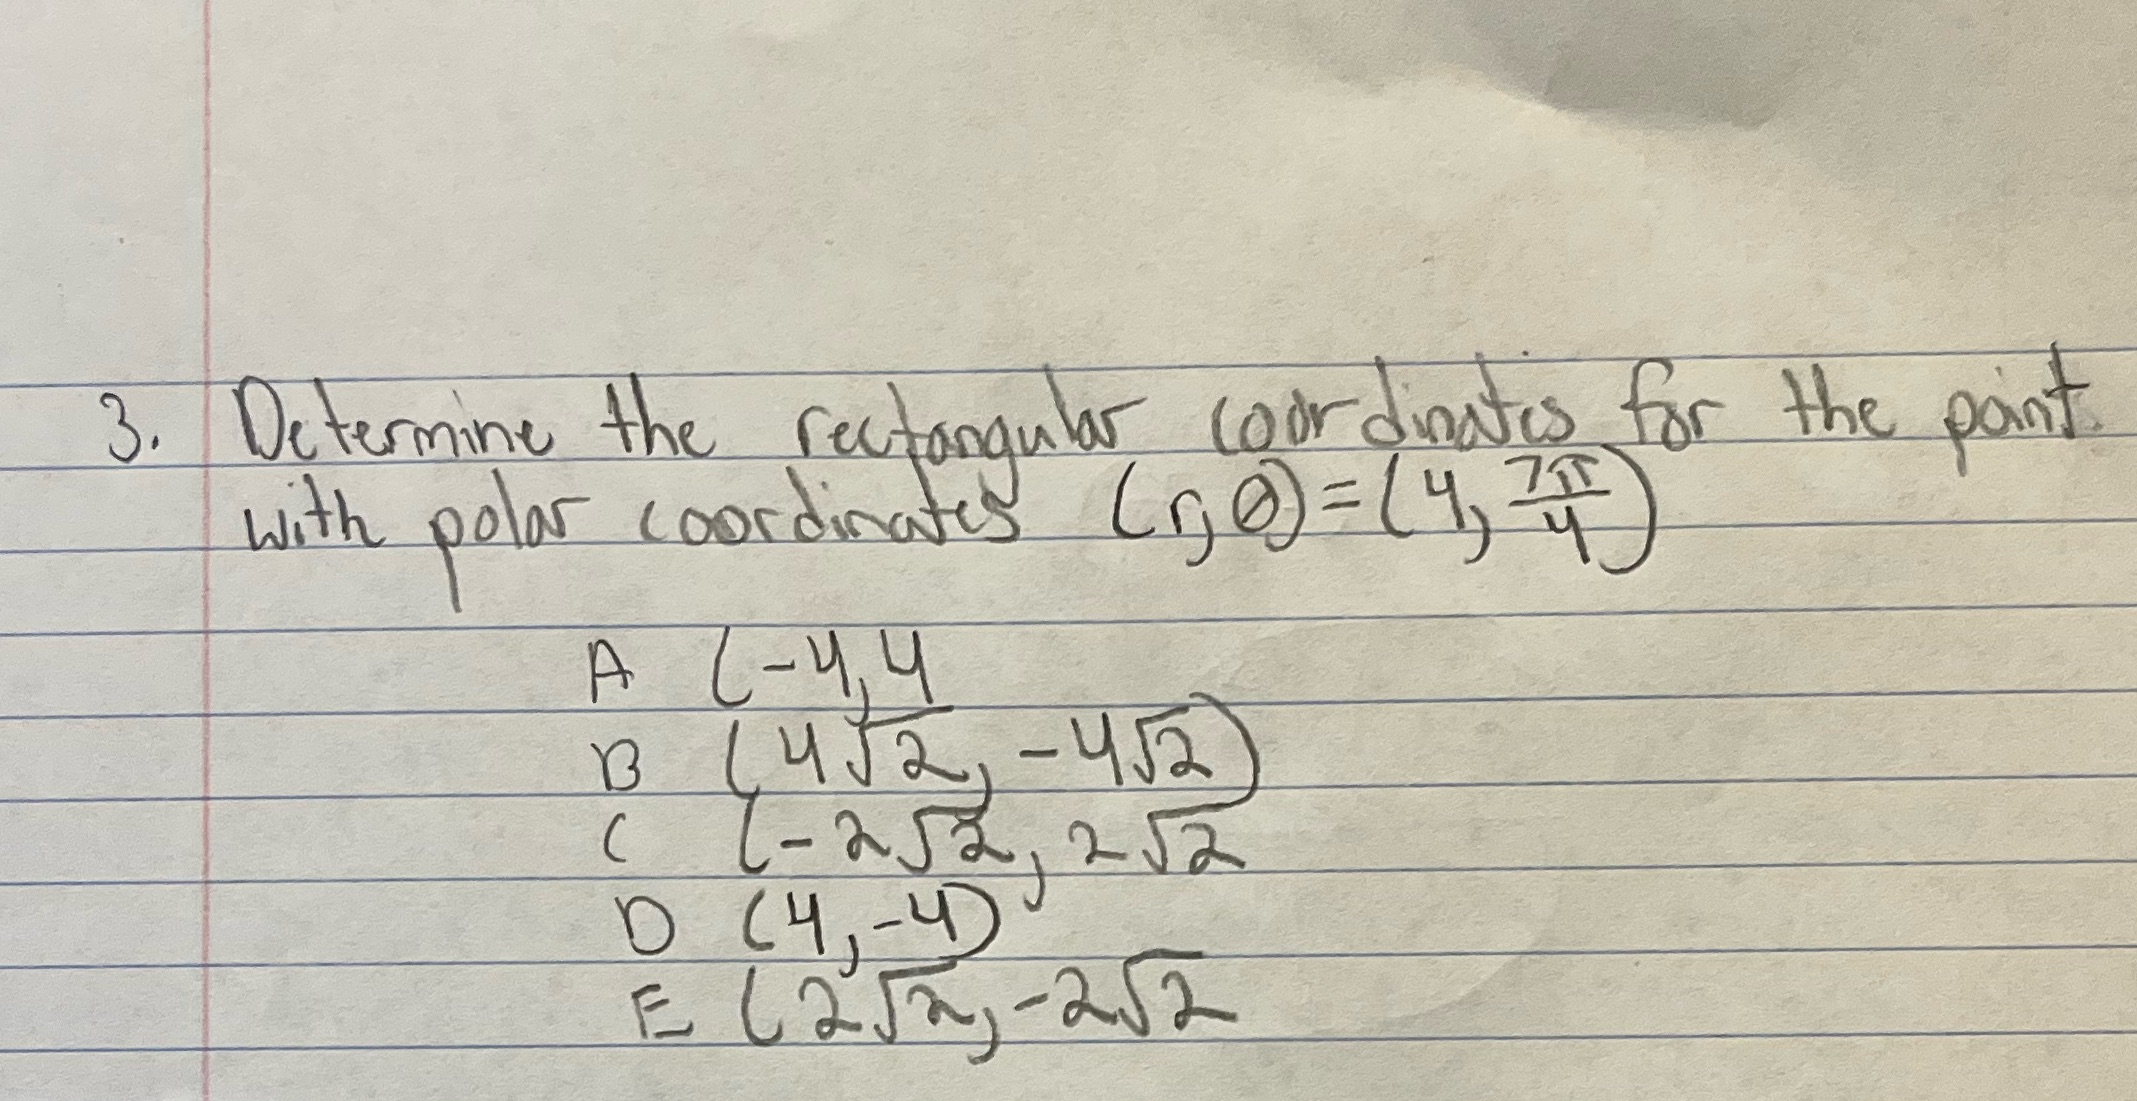 3. Determine the rectangular coordinates for the point
with polar coordinates (r, θ) = (4, 7π/4)
A (-4, 4
B (4√2, -4√2)
C (-2√2, 2√2
D (4, -4)
E (2√2, -2√2